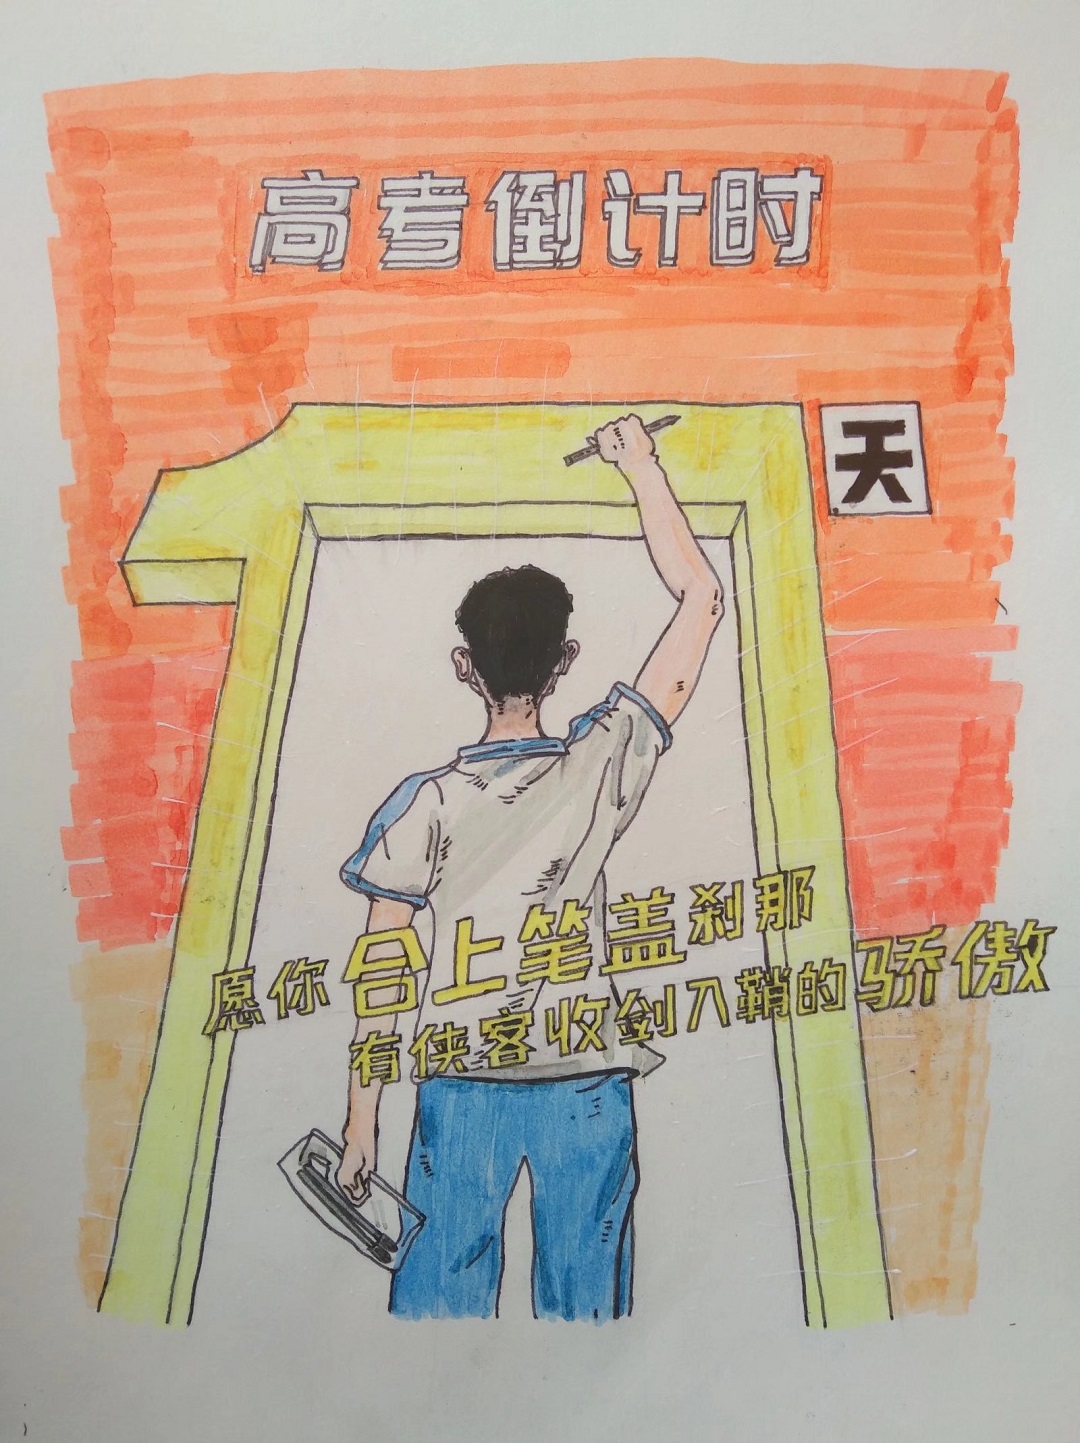 高考倒计时
1天
愿你合上笔盖刹那
有侠客收剑入鞘的骄傲